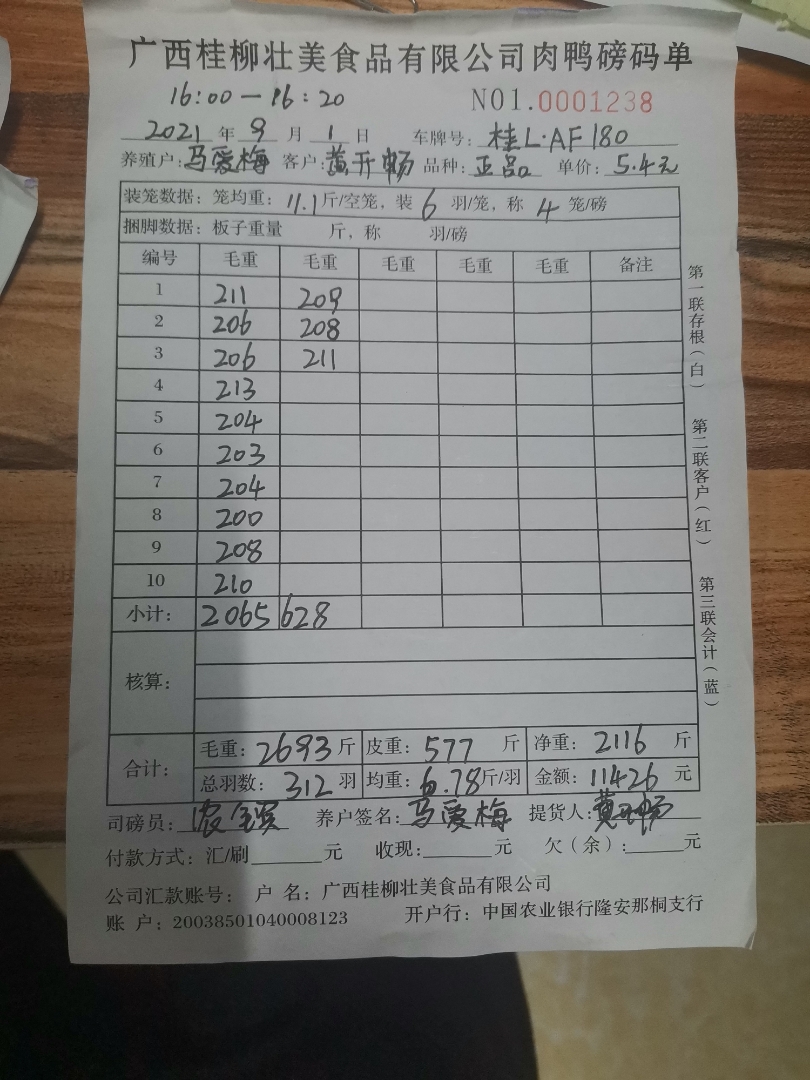 广西桂柳壮美食品有限公司肉鸭磅码单
16:00—16:20 NO1.0001238
2021 年 9 月 1 日 车牌号: 桂L·AF180
养殖户: 马爱梅 客户: 黄开畅 品种: 正品 单价: 5.4元
装笼数据: 笼均重: 11.1 斤/空笼, 装 6 羽/笼, 称 4 笼/磅
捆脚数据: 板子重量 斤, 称 羽/磅
编号 毛重 毛重 毛重 毛重 毛重 备注
1 211 209
2 206 208
3 206 211
4 213
5 204
6 203
7 204
8 200
9 208
10 210
小计: 2065 628
核算:
合计: 毛重: 2693 斤 皮重: 577 斤 净重: 2116 斤
总羽数: 312 羽 均重: 6.78 斤/羽 金额: 11426 元
司磅员: 养户签名: 马爱梅 提货人: 黄开畅
付款方式: 汇/刷 元 收现: 元 欠(余): 元
公司汇款账号: 户 名: 广西桂柳壮美食品有限公司
账 户: 20038501040008123 开户行: 中国农业银行隆安那桐支行
第一联存根(白) 第二联客户(红) 第三联会计(蓝)